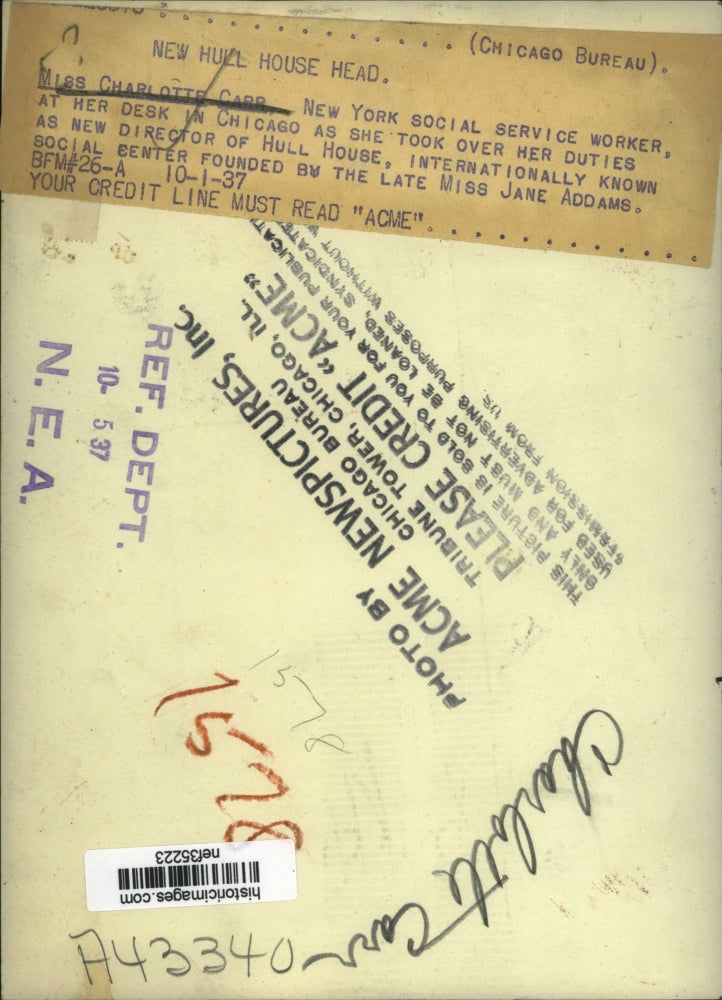 (CHICAGO BUREAU).
NEW HULL HOUSE HEAD.
MISS CHARLOTTE CARR, NEW YORK SOCIAL SERVICE WORKER,
AT HER DESK IN CHICAGO AS SHE TOOK OVER HER DUTIES
AS NEW DIRECTOR OF HULL HOUSE, INTERNATIONALLY KNOWN
SOCIAL CENTER FOUNDED BY THE LATE MISS JANE ADDAMS.
BFM#26-A 10-1-37
YOUR CREDIT LINE MUST READ "ACME".
PHOTO BY
ACME NEWSPICTURES, Inc.
CHICAGO BUREAU
TRIBUNE TOWER, CHICAGO, ILL.
PLEASE CREDIT "ACME"
THIS PICTURE IS SOLD TO YOU FOR YOUR PUBLICATI
ONLY AND MUST NOT BE LOANED, SYNDICATE
USED FOR ADVERTISING PURPOSES WITHOUT
PERMISSION FROM US.
REF. DEPT.
10- 5 37
N. E. A.
1578
1578
Charlotte Carr
historicimages.com
nef35223
A43340